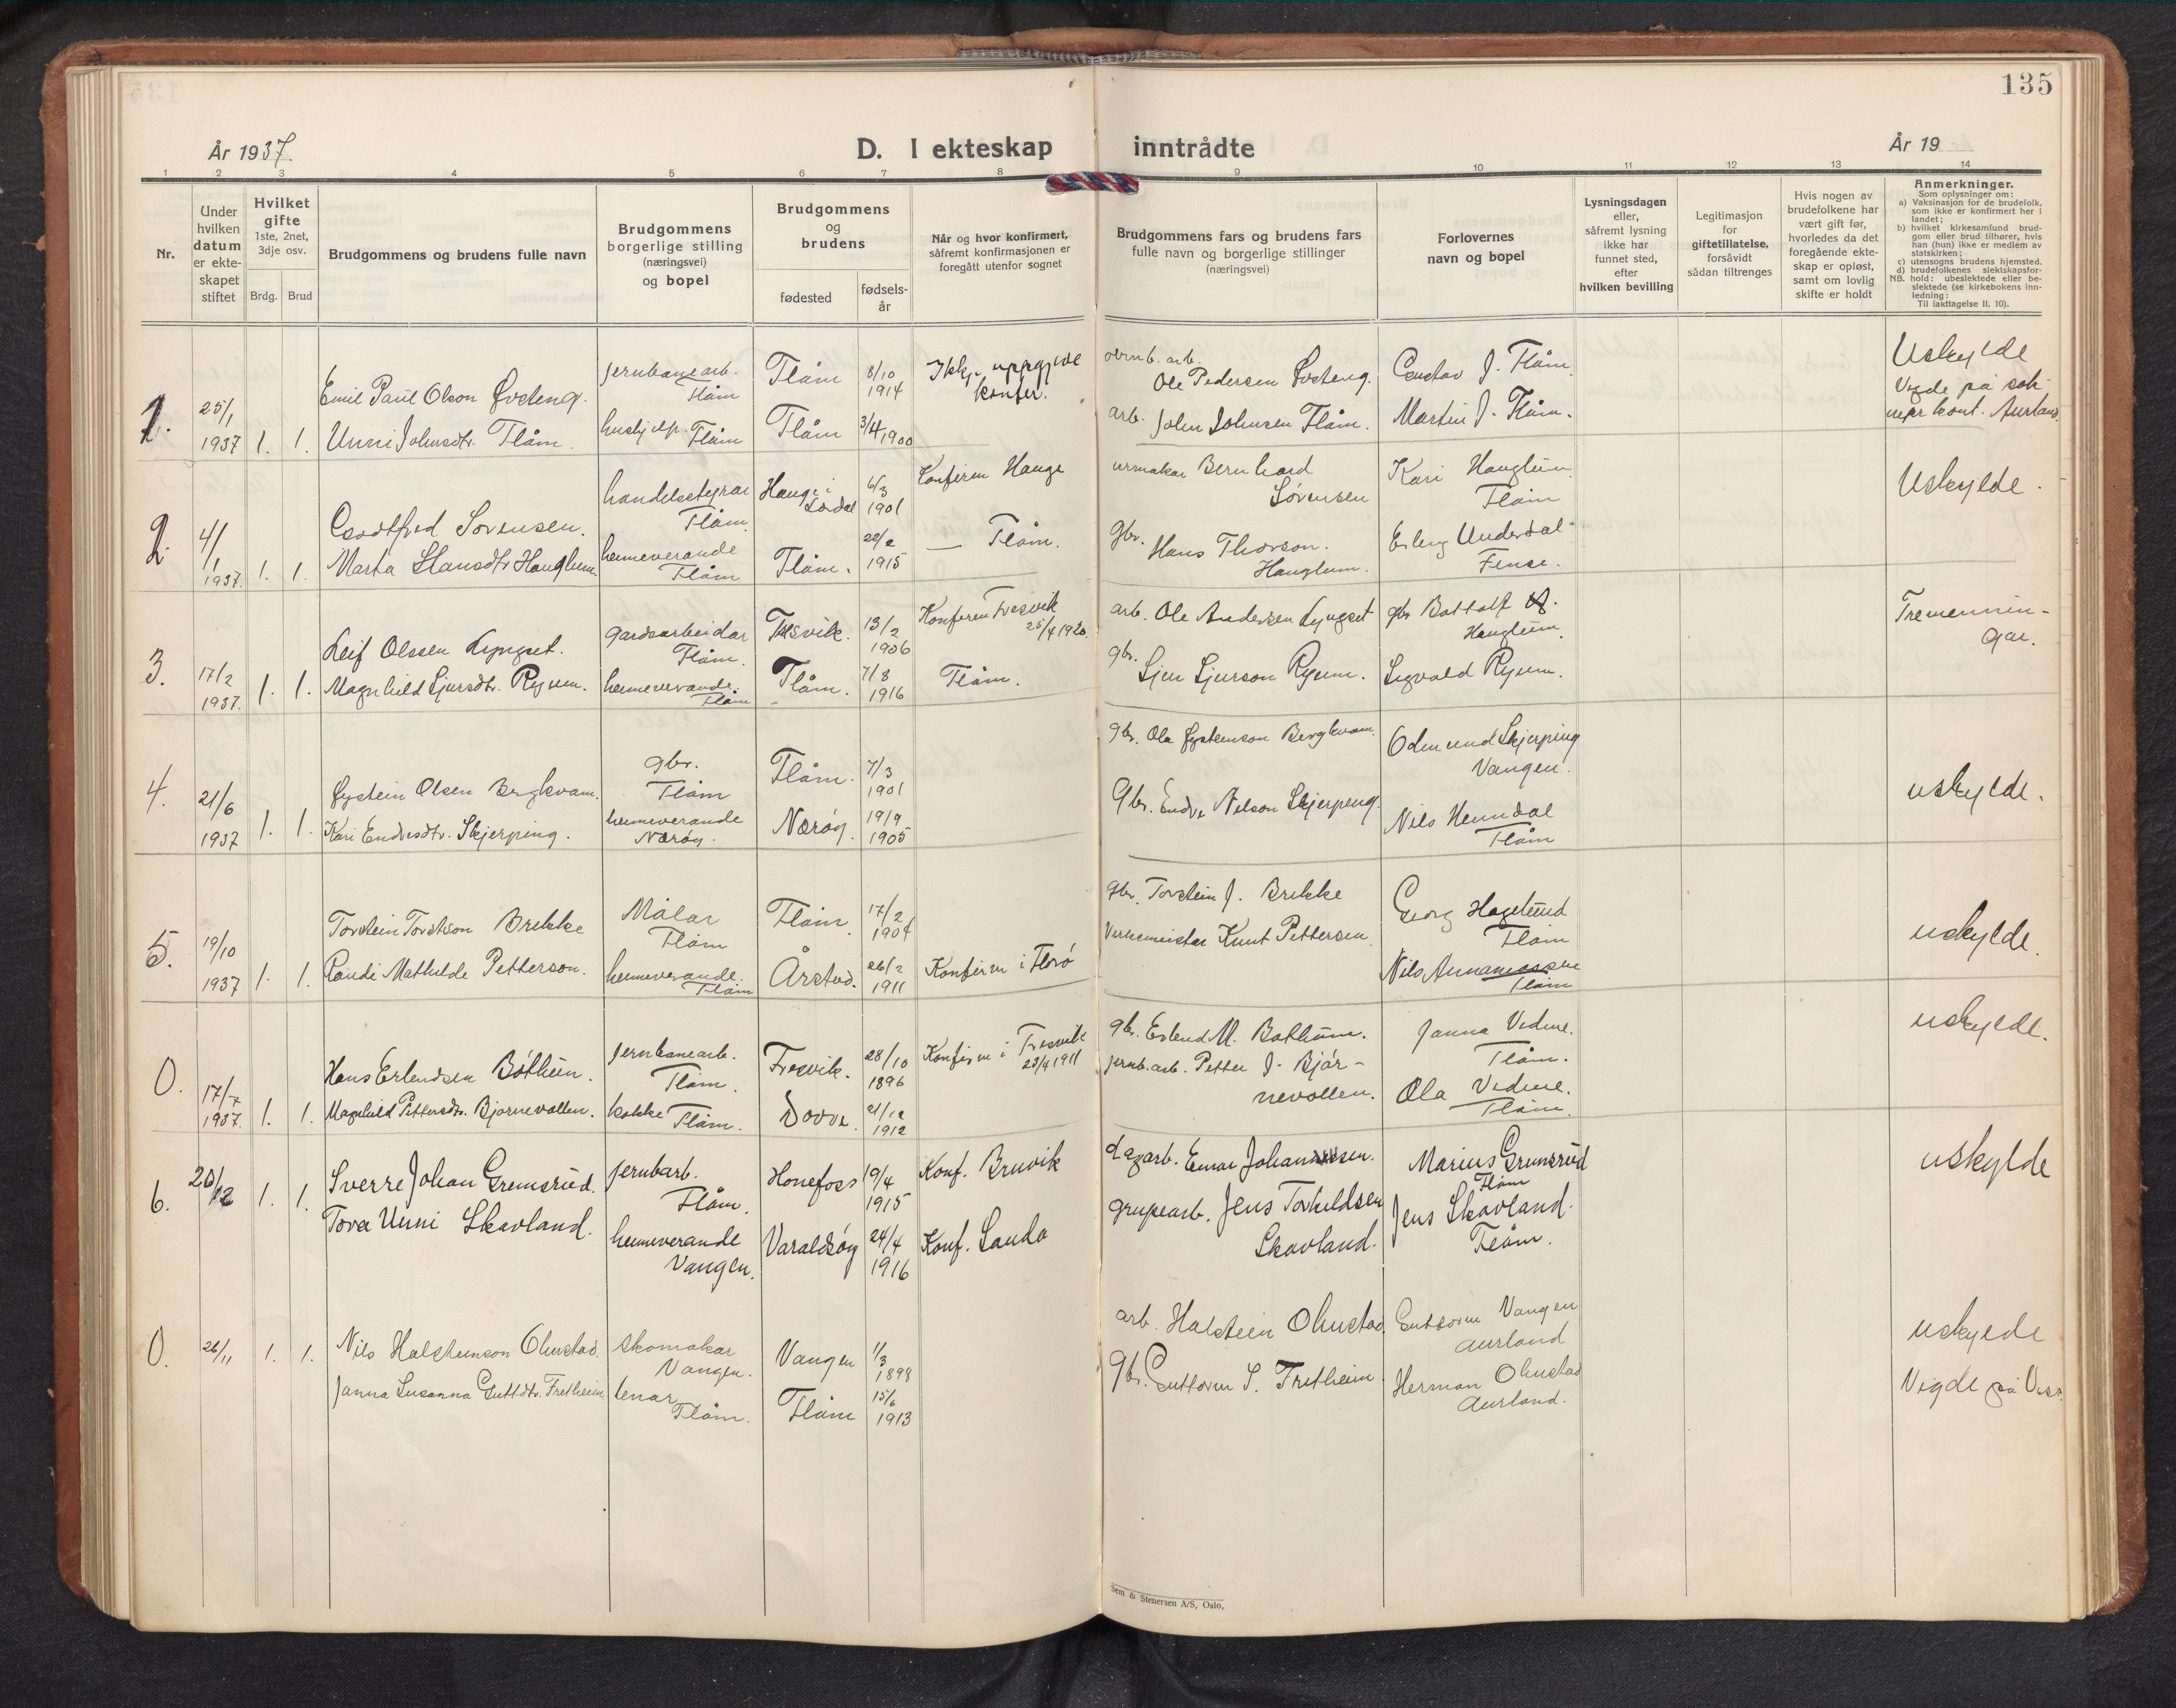 135
År 1937.
D. I ekteskap inntrådte
År 19
1 2 3 4 5 6 7 8 9 10 11 12 13 14
Nr.
Under
hvilken
datum
er ekte-
skapet
stiftet
Hvilket
gifte
1ste, 2net,
3dje osv.
Brdg. Brud
Brudgommens og brudens fulle navn
Brudgommens
borgerlige stilling
(næringsvei)
og bopel
Brudgommens
og
brudens
fødested
fødsels-
år
Når og hvor konfirmert,
såfremt konfirmasjonen er
foregått utenfor sognet
Brudgommens fars og brudens fars
fulle navn og borgerlige stillinger
(næringsvei)
Forlovernes
navn og bopel
Lysningsdagen
eller,
såfremt lysning
ikke har
funnet sted,
efter
hvilken bevilling
Legitimasjon
for
giftetillatelse,
forsåvidt
sådan tiltrenges
Hvis nogen av
brudefolkene har
vært gift før,
hvorledes da det
foregående ekte-
skap er opløst,
samt om lovlig
skifte er holdt
Anmerkninger.
Som oplysninger om:
a) Vaksinasjon for de brudefolk,
som ikke er konfirmert her i
landet;
b) hvilket kirkesamfund brud-
gom eller brud tilhører, hvis
han (hun) ikke er medlem av
statskirken;
c) utensogns brudens hjemsted.
d) brudefolkenes slektskapsfor-
NB. hold: ubeslektede eller be-
slektede (se kirkebokens inn-
ledning:
Til iakttagelse II. 10).
1.
25/1
1937
1. 1.
Emil Paul Olson
Unni Johnsdtr. Flåm.
jernbanearb.
Flåm
hushjelp. Flåm
Flåm 8/10
1914
Flåm 3/4 1900
Ikkje uppgjeve
konfir.
Ole Pedersen
arb. John Johnsen Flåm.
Gustav J. Flåm.
Martin J. Flåm.
Uskylde
Vigde på sok-
nepr. kont. Aurland
2.
4/1
1937.
1. 1.
Gotfred Sørensen.
Marta Hansdtr Hauglum.
handelsstyrar
Flåm.
heimeverande
Flåm
Hauge i
Lærdal
6/3
1901
Flåm. 22/2
1915
Konfirm Hauge
— Flåm.
urmakar Bernhard
Sørensen
gbr. Hans Thorson.
Hauglum.
Kari Hauglum
Flåm
Erling Underdal
Finse.
Uskylde.
3.
17/2
1937.
1. 1.
Leif Olssen Lyngset.
Magnhild Sjursdtr. Ryum.
gardsarbeidar
Flåm.
heimeverande.
Flåm
Fresvik. 13/2
1906
Flåm. 7/8
1916
Konfirm Fresvik
25/4 1920.
Flåm.
arb. Ole Andersen Lyngset
gbr. Sjur Sjurson Ryum.
gbr Bottolf
Hauglum.
Sigvald Ryum.
Tremennin-
gar.
4.
21/6
1937
1. 1.
Øystein Olsen Bergkvam.
Kari Endresdtr. Skjerping.
gbr.
Flåm
heimeverande
Nærøy.
Flåm. 7/3
1901
Nærøy. 19/9
1905
gbr. Ola Øysteinson Bergkvam.
Gbr. Endre Nilson Skjerping.
Odmund Skjerping
Vangen.
Nils Hemdal
Flåm
uskylde.
5.
19/10
1937
1. 1.
Torstein Torstson Brekke
Randi Mathilde Petterson.
Målar
Flåm
heimeverande.
Flåm
Flåm. 17/2
1904
Årstad. 26/2
1911
Konfirm i Florø
gbr. Torstein J. Brekke
Verkemeister Knut Pettersen.
Georg Hagelund
Flåm
Nils
Flåm
uskylde.
0.
17/7
1937.
1. 1.
Hans Erlendsen Bøthun.
Magnhild Pettersdtr. Bjørnevollen.
jernbanearb.
Flåm.
kokke Flåm.
Fresvik. 28/10
1896
Dovre. 21/12
1912
Konfirm i Fresvik
23/4 1911
gbr. Erlend M. Bøthun.
jernb.arb. Petter J. Bjør-
nevollen.
Janna Vidme.
Flåm.
Ola Vidme.
Flåm.
uskylde.
6.
26/12
1. 1.
Sverre Johan Gremsrud.
Tora Unni Skavland.
jernbarb.
Flåm.
heimeverande
Vangen.
Hønefoss 19/4
1915
Varaldsøy 24/4
1916
Konf. Bruvik
Konf. Sauda
dagarb. Einar Johannessen.
gruvearb. Jens Torkildsen
Skavland.
Marius Gremsrud
Flåm
Jens Skavland.
Flåm.
uskylde
0.
26/11
1. 1.
Nils Halsteinson Ohnstad.
Janna Susanna Guttdtr. Fretheim
Skomakar
Vangen.
tenar
Flåm.
Vangen 1/3
1898
Flåm 15/6
1913
arb. Halstein Ohnstad.
gbr. Guttorm S. Fretheim.
Guttorm Vangen
Aurland
Herman Ohnstad
Aurland.
uskylde
Vigde på Voss.
Sem & Stenersen A/S, Oslo,